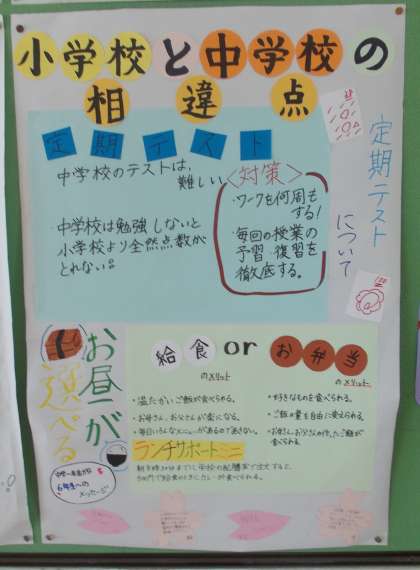 小学校と中学校の
相違点
定期テスト
中学校のテストは、
難しい
・中学校は勉強しないと
小学校より全然点数が
とれない。
〈対策〉
・ワークを何周も
する!
・毎回の授業の
予習・復習を
徹底する。
定期テスト
について
お昼が
選べる
給食orお弁当
のメリット
・温たかいご飯が食べられる。
・お母さん、お父さんが楽になる。
・毎日いろんなメニューがあるのであきない。
のメリット
・好きなものを食べられる。
・ご飯の量を自由に変えられる。
・お母さん、お父さんの作ったご飯が
食べられる。
ランチサポートミニ
6年生への
メッセージ